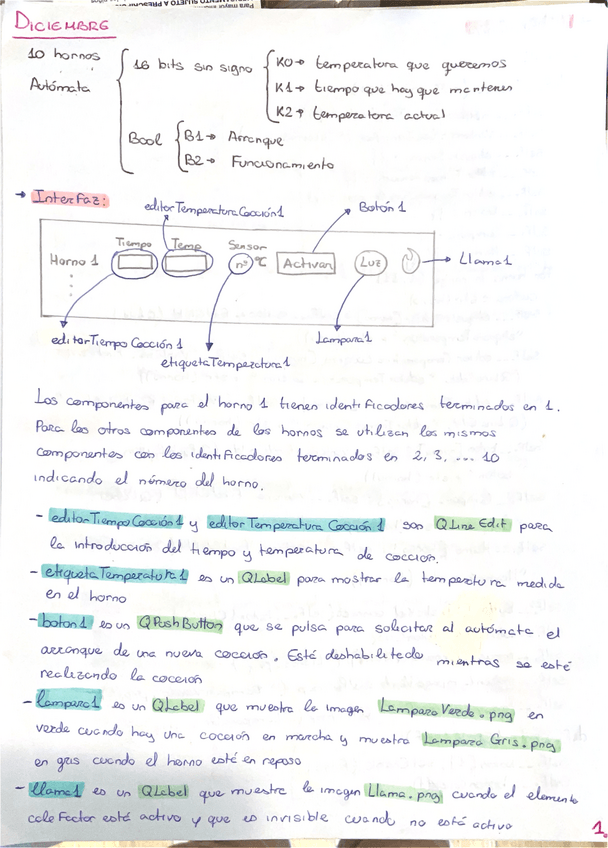 DICIEMBRE
10 hornos
Autómata
16 bits sin signo
K0 → temperatura que queremos
K1 → tiempo que hay que mantener
K2 → temperatura actual
Bool
B1 → Arranque
B2 → Funcionamiento
→ Interfaz:
editorTemperaturaCocción1
Botón1
Tiempo
Temp
Sensor
Horno 1
nº ºC
Activar
Luz
→ Llama1
editorTiempoCocción1
etiquetaTemperatura1
Lampara1
Los componentes para el horno 1 tienen identificadores terminados en 1.
Para los otros componentes de los hornos se utilizan los mismos
componentes con los identificadores terminados en 2, 3, ... 10
indicando el número del horno.
- editorTiempoCocción1 y editorTemperatura Cocción1 son QLineEdit para
la introducción del tiempo y temperatura de cocción.
- etiquetaTemperatura1 es un QLabel para mostrar la temperatura medida
en el horno
- boton1 es un QPushButton que se pulsa para solicitar al autómata el
arranque de una nueva cocción. Está deshabilitado mientras se esté
realizando la cocción
- lampara1 es un QLabel que muestra la imagen LamparaVerde.png en
verde cuando hay una cocción en marcha y muestra Lampara Gris.png
en gris cuando el horno está en reposo
- llama1 es un QLabel que muestra la imagen Llama.png cuando el elemento
calefactor está activo y que es invisible cuando no está activo
1.